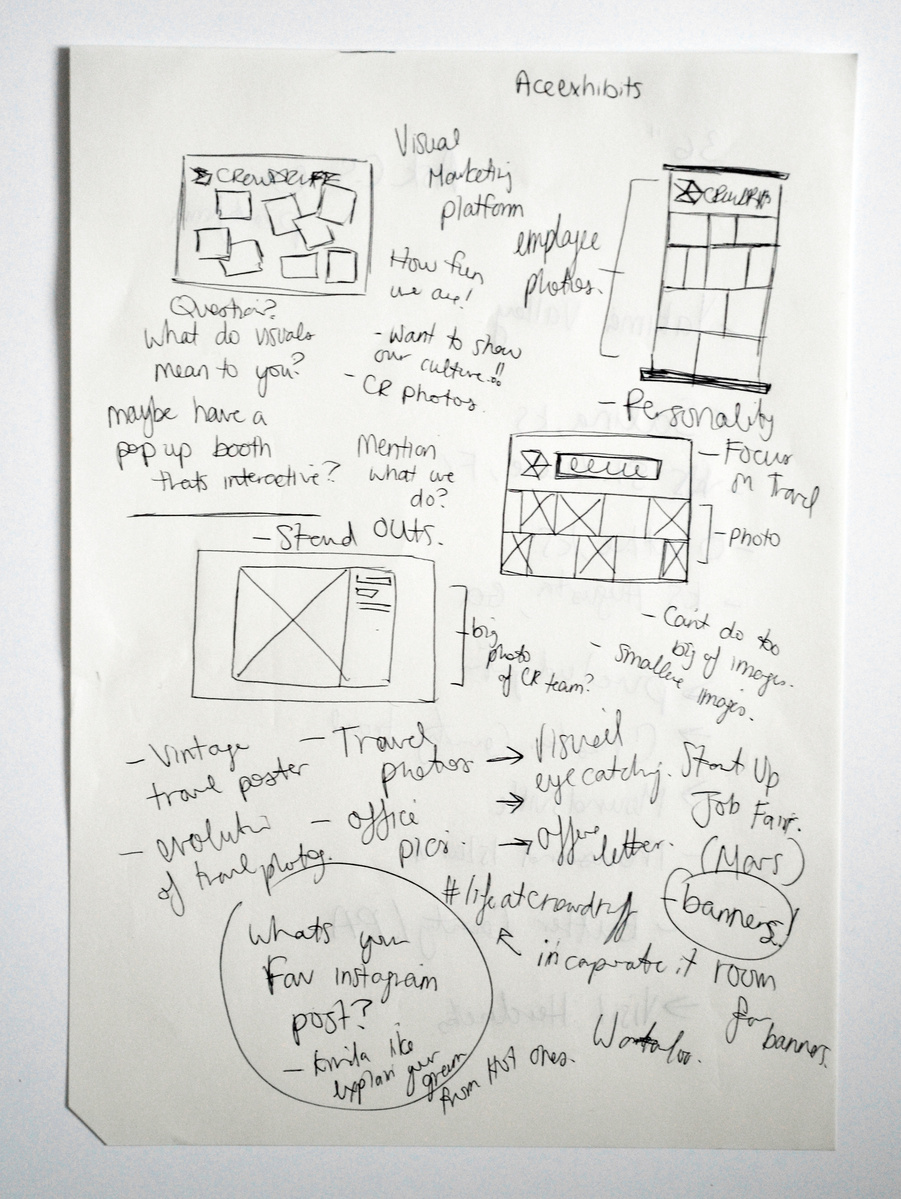 Aceexhibits
Visual
Marketing
platform
CROWDRIFF
How fun
we are!
- Want to show
our culture..!!
- CR photos.
employee
photos.
CROWDRIFF
Question?
What do visuals
mean to you?
maybe have a
pop up booth
thats interactive?
Mention
what we
do?
- Personality
- Focus
on Travel
- photo
- Stand OUTS.
- big
photo
of CR team?
- Can't do too
big of images.
- smaller images.
- Vintage
travel poster
- evolution
of travel photog.
- Travel
photos
- office
pics.
→ Visual
eyecatching.
→
→ Offer
letter.
Start Up
Job Fair.
(Mars)
- banners.
#lifeatcrowdriff
incaporate it
room
for
banners.
Whats your
Fav instagram
post?
- kinda like
explain your gram
from Hot ones.
Waterloo.